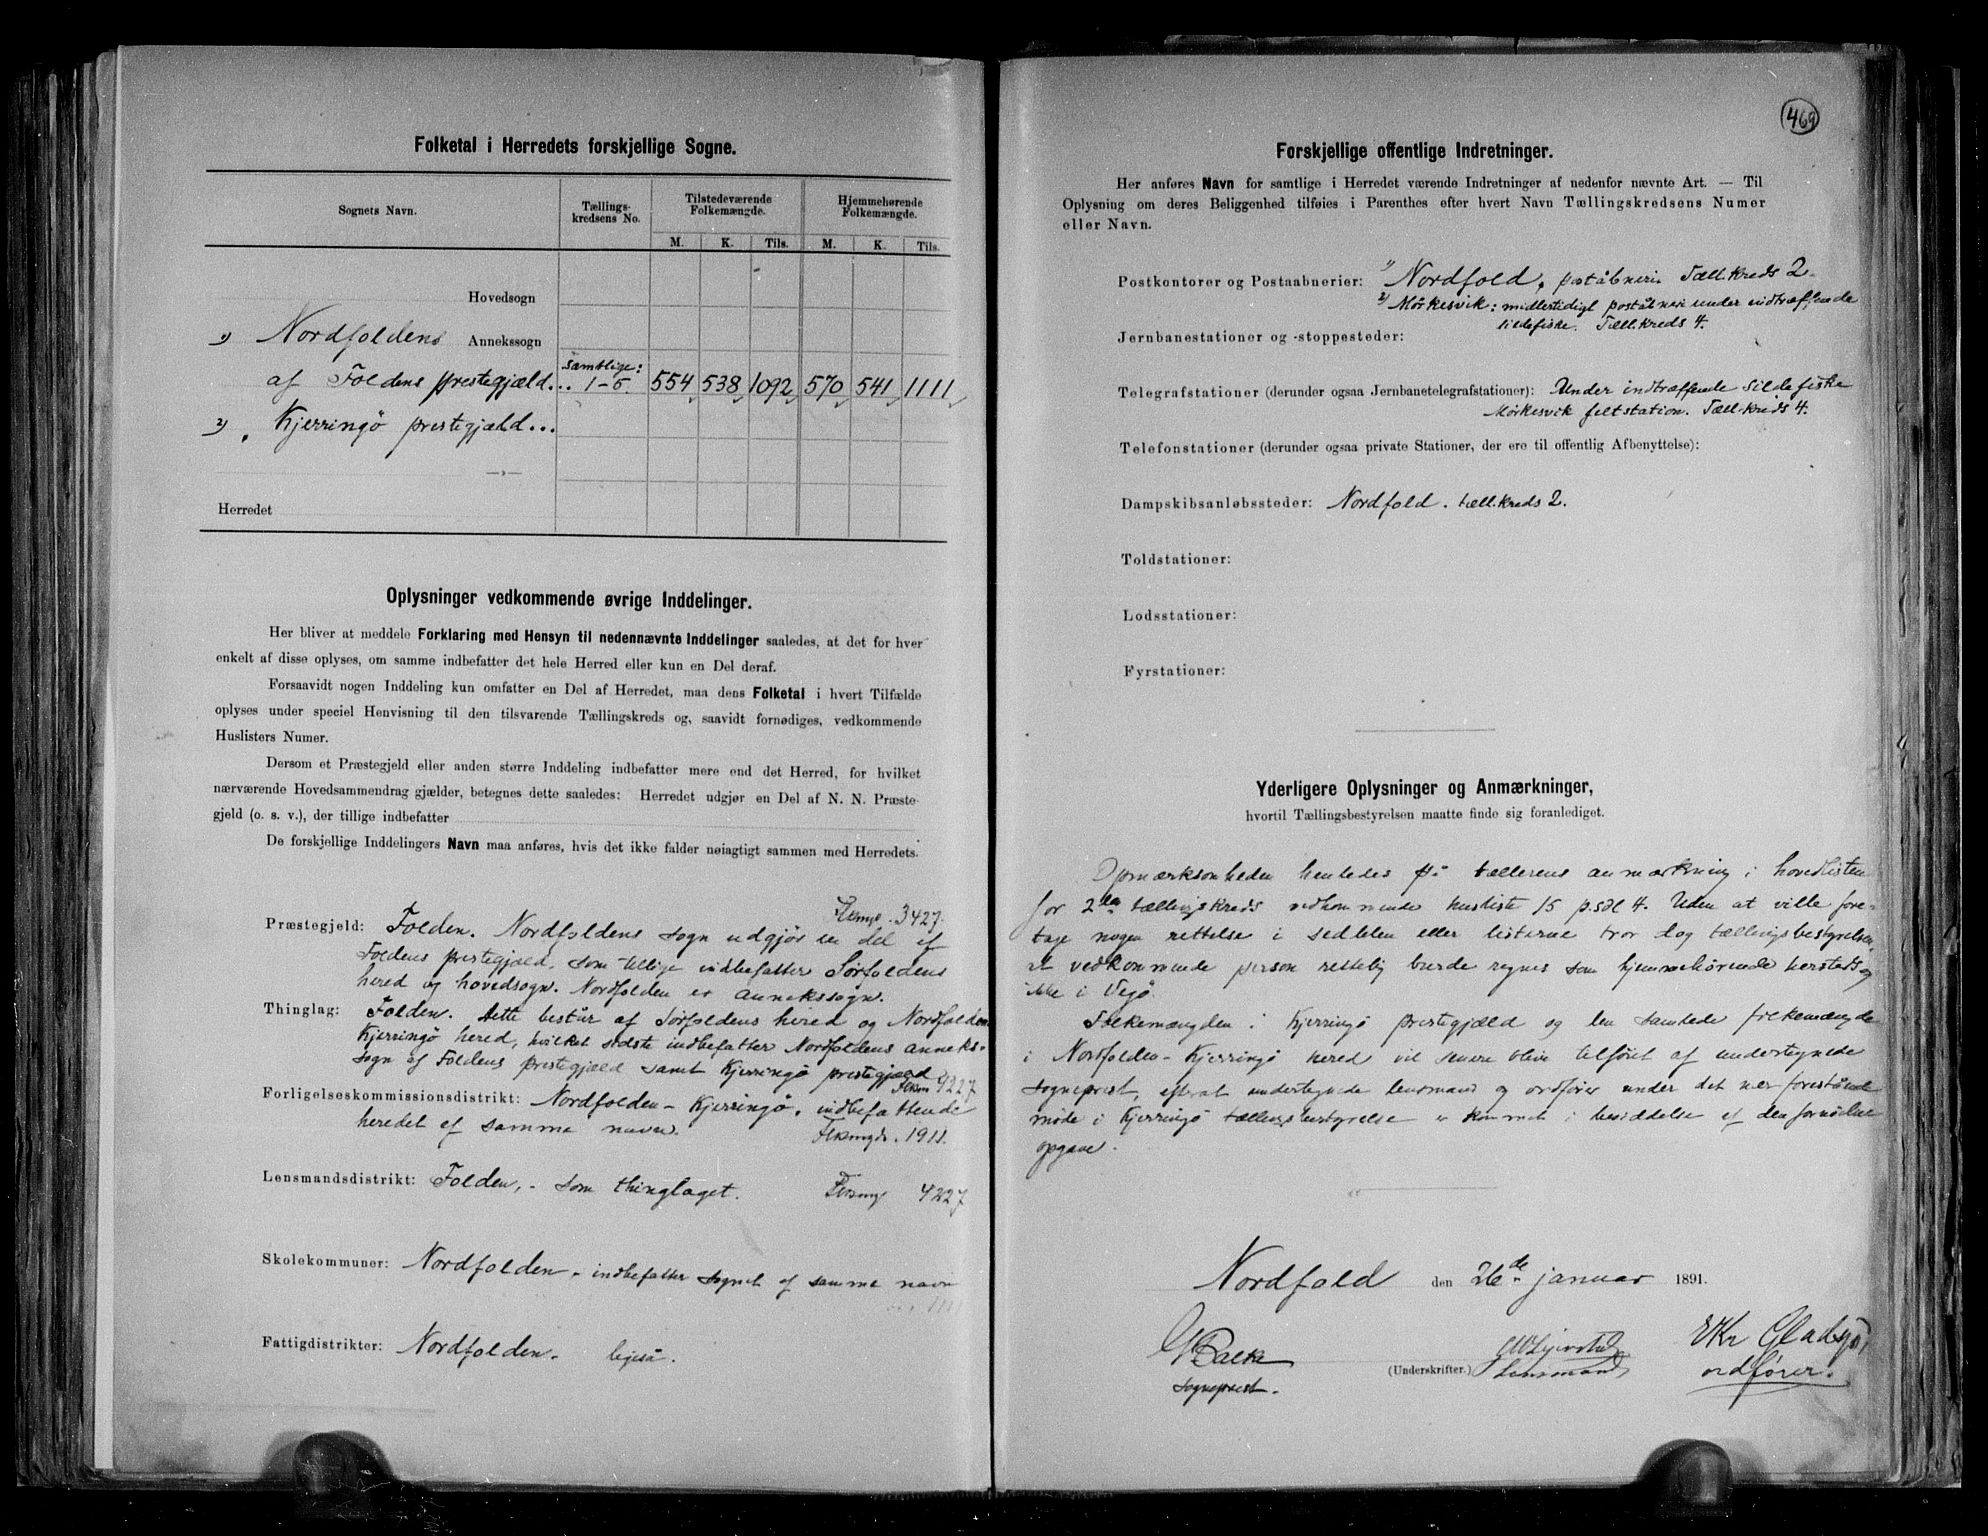 Folketal i Herredets forskjellige Sogne.
Sognets Navn.
Tællings-
kredsens No.
Tilstedeværende
Folkemængde.
Hjemmehørende
Folkemængde.
M. K. Tils. M. K. Tils.
Hovedsogn
1) Nordfoldens Annekssogn
af Foldens prestegjæld... samtlige: 1-5. 554 538 1092 570 541 1111
2) " Kjerringö prestegjæld...
Herredet
Oplysninger vedkommende øvrige Inddelinger.
Her bliver at meddele Forklaring med Hensyn til nedennævnte Inddelinger saaledes, at det for hver
enkelt af disse oplyses, om samme indbefatter det hele Herred eller kun en Del deraf.
Forsaavidt nogen Inddeling kun omfatter en Del af Herredet, maa dens Folketal i hvert Tilfælde
oplyses under speciel Henvisning til den tilsvarende Tællingskreds og, saavidt fornødiges, vedkommende
Huslisters Numer.
Dersom et Præstegjeld eller anden større Inddeling indbefatter mere end det Herred, for hvilket
nærværende Hovedsammendrag gjælder, betegnes dette saaledes: Herredet udgjør en Del af N. N. Præste-
gjeld (o. s. v.), der tillige indbefatter
De forskjellige Inddelingers Navn maa anføres, hvis det ikke falder nøiagtigt sammen med Herredets.
3427.
Præstegjeld: Folden. Nordfoldens sogn udgjör en del af
Foldens prestegjæld, som tillige indbefatter Sörfoldens
hered og hovedsogn. Nordfolden er annekssogn.
Thinglag: Folden. Dette består af Sörfoldens hered og Nordfolden
Kjerringö hered, hvilket sidste indbefatter Nordfoldens anneks-
sogn af Foldens prestegjæld samt Kjerringö prestegjæld
4227
Forligelseskommissionsdistrikt: Nordfolden - Kjerringö, indbefattende
heredet af samme navn. 1911.
Lensmandsdistrikt: Folden, - som thinglaget. 4227
Skolekommuner: Nordfolden - indbefatter sognet af samme navn
1111
Fattigdistrikter: Nordfolden - ligeså.
469
Forskjellige offentlige Indretninger.
Her anføres Navn for samtlige i Herredet værende Indretninger af nedenfor nævnte Art. — Til
Oplysning om deres Beliggenhed tilføies i Parenthes efter hvert Navn Tællingskredsens Numer
eller Navn.
Postkontorer og Postaabnerier: 1) Nordfold, poståbneri. Tæll.kreds 2.
2) Mörkesvik: midlertidigt poståbneri under indtræffende
sildefiske. Tæll.kreds 4.
Jernbanestationer og -stoppesteder:
Telegrafstationer (derunder ogsaa Jernbanetelegrafstationer): Under indtræffende sildefiske
Mörkesvik feltstation. Tæll.kreds 4.
Telefonstationer (derunder ogsaa private Stationer, der ere til offentlig Afbenyttelse):
Dampskibsanløbssteder: Nordfold. tæll.kreds 2.
Toldstationer:
Lodsstationer:
Fyrstationer:
Yderligere Oplysninger og Anmærkninger,
hvortil Tællingsbestyrelsen maatte finde sig foranlediget.
Opmærksomheden henledes på tællerens anmærkning i hovedlisten
for 2den tællingskreds vedkommende husliste 15 p.sdl 4. Uden at ville fore-
tage nogen rettelse i sedlelen eller listerne tror dog tællingsbestyrelsen,
at vedkommende person rettelig burde regnes som hjemmehörende hersteds og
ikke i Vejö.
Folkemængden i Kjerringö prestegjæld og den samlede folkemængde
i Nordfolden-Kjerringö hered vil senere blive tilföiet af undertegnede
sogneprest, efterat undertegnede lensmand og ordförer under det nær forestående
möde i Kjerringö tællingsbestyrelse er kommet i besiddelse af den fornödne
opgave.
Nordfold den 26de januar 1891.
Balke
sogneprest.
(Underskrifter.)
lensmand
EKr Gladsjö,
ordförer.